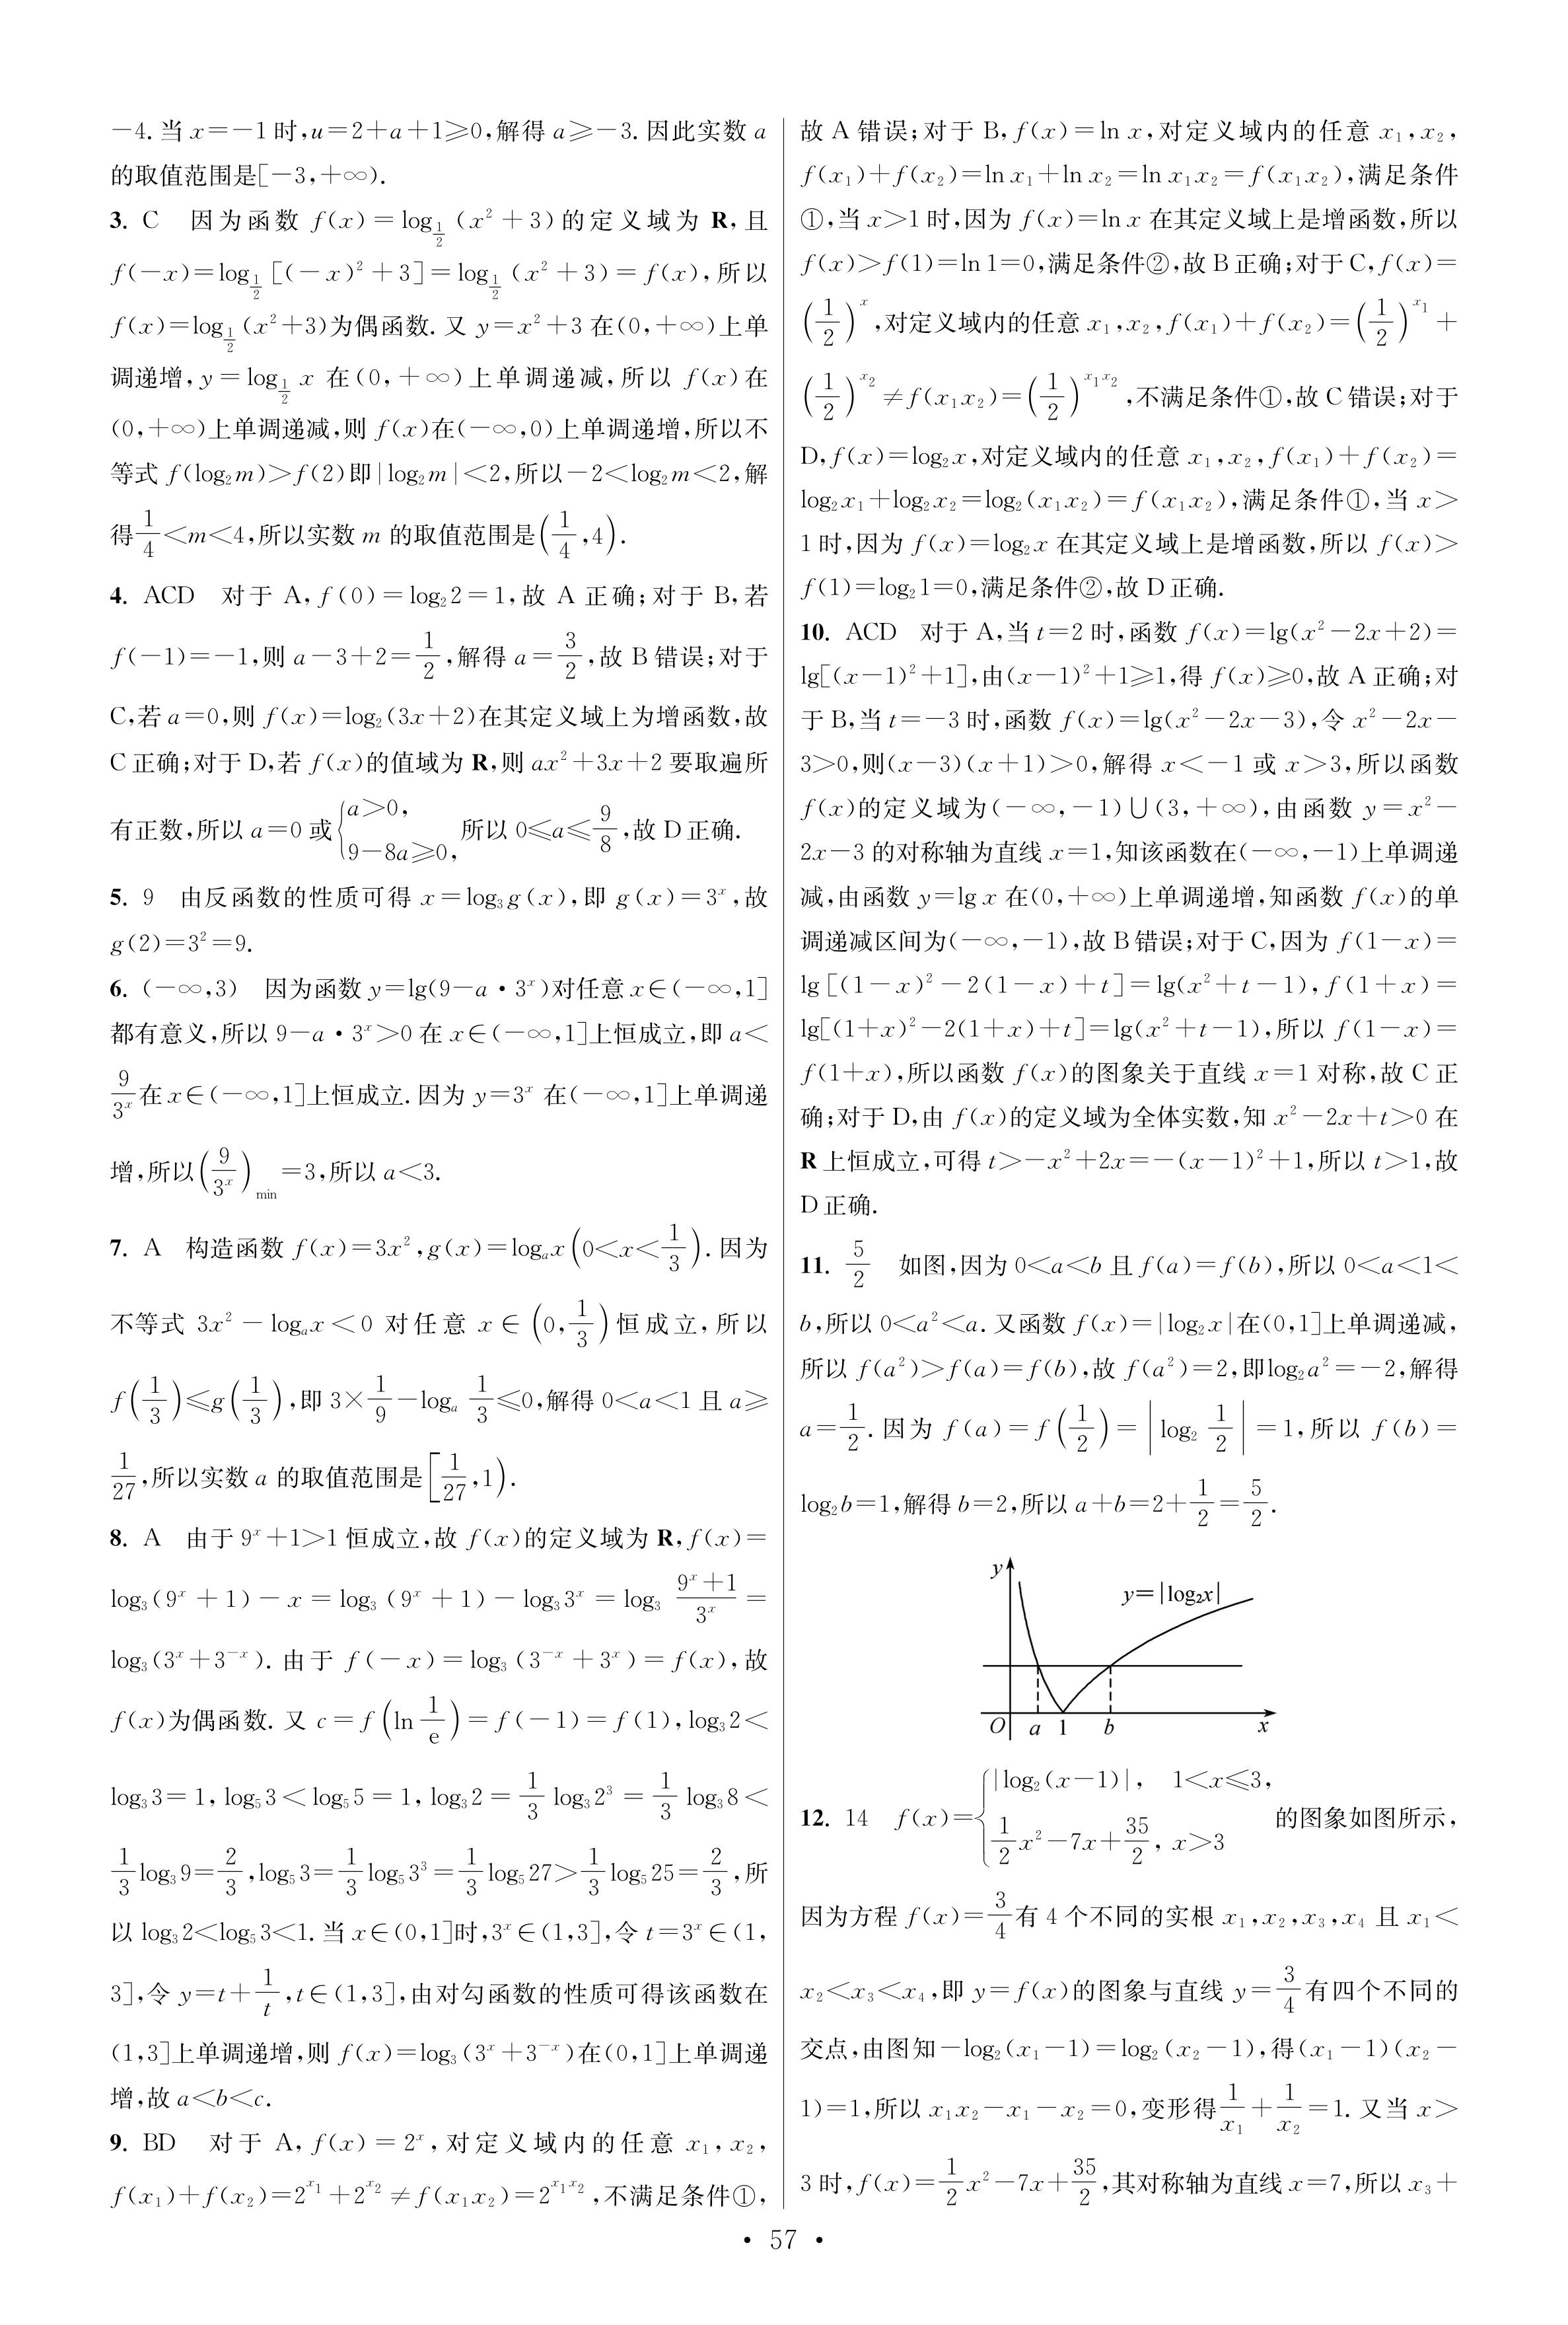 -4. 当 x=-1 时,u=2+a+1≥0,解得 a≥-3. 因此实数 a
的取值范围是[-3,+∞).
3. C 因为函数 f(x)=log_{1/2}(x²+3)的定义域为 R,且
f(-x)=log_{1/2}[(-x)²+3]=log_{1/2}(x²+3)=f(x),所以
f(x)=log_{1/2}(x²+3)为偶函数. 又 y=x²+3 在(0,+∞)上单
调递增,y=log_{1/2} x 在(0,+∞)上单调递减,所以 f(x)在
(0,+∞)上单调递减,则 f(x)在(-∞,0)上单调递增,所以不
等式 f(log₂m)>f(2)即|log₂m|<2,所以-2<log₂m<2,解
得 1/4<m<4,所以实数 m 的取值范围是(1/4,4).
4. ACD 对于 A,f(0)=log₂2=1,故 A 正确;对于 B,若
f(-1)=-1,则 a-3+2=1/2,解得 a=3/2,故 B 错误;对于
C,若 a=0,则 f(x)=log₂(3x+2)在其定义域上为增函数,故
C 正确;对于 D,若 f(x)的值域为 R,则 ax²+3x+2 要取遍所
有正数,所以 a=0 或{a>0, 9-8a≥0, 所以 0≤a≤9/8,故 D 正确.
5. 9 由反函数的性质可得 x=log₃g(x),即 g(x)=3^x,故
g(2)=3²=9.
6. (-∞,3) 因为函数 y=lg(9-a·3^x)对任意 x∈(-∞,1]
都有意义,所以 9-a·3^x>0 在 x∈(-∞,1]上恒成立,即 a<
9/3^x 在 x∈(-∞,1]上恒成立. 因为 y=3^x 在(-∞,1]上单调递
增,所以(9/3^x)_min=3,所以 a<3.
7. A 构造函数 f(x)=3x²,g(x)=log_a x(0<x<1/3). 因为
不等式 3x²-log_a x<0 对任意 x∈(0,1/3)恒成立,所以
f(1/3)≤g(1/3),即 3×1/9-log_a 1/3≤0,解得 0<a<1 且 a≥
1/27,所以实数 a 的取值范围是[1/27,1).
8. A 由于 9^x+1>1 恒成立,故 f(x)的定义域为 R,f(x)=
log₃(9^x+1)-x=log₃(9^x+1)-log₃3^x=log₃ (9^x+1)/3^x=
log₃(3^x+3^{-x}). 由于 f(-x)=log₃(3^{-x}+3^x)=f(x),故
f(x)为偶函数. 又 c=f(ln 1/e)=f(-1)=f(1),log₃2<
log₃3=1,log₅3<log₅5=1,log₃2=1/3 log₃2³=1/3 log₃8<
1/3 log₃9=2/3,log₅3=1/3 log₅3³=1/3 log₅27>1/3 log₅25=2/3,所
以 log₃2<log₅3<1. 当 x∈(0,1]时,3^x∈(1,3],令 t=3^x∈(1,
3],令 y=t+1/t,t∈(1,3],由对勾函数的性质可得该函数在
(1,3]上单调递增,则 f(x)=log₃(3^x+3^{-x})在(0,1]上单调递
增,故 a<b<c.
9. BD 对于 A,f(x)=2^x,对定义域内的任意 x₁,x₂,
f(x₁)+f(x₂)=2^{x₁}+2^{x₂}≠f(x₁x₂)=2^{x₁x₂},不满足条件①,
故 A 错误;对于 B,f(x)=ln x,对定义域内的任意 x₁,x₂,
f(x₁)+f(x₂)=ln x₁+ln x₂=ln x₁x₂=f(x₁x₂),满足条件
①,当 x>1 时,因为 f(x)=ln x 在其定义域上是增函数,所以
f(x)>f(1)=ln 1=0,满足条件②,故 B 正确;对于 C,f(x)=
(1/2)^x,对定义域内的任意 x₁,x₂,f(x₁)+f(x₂)=(1/2)^{x₁}+
(1/2)^{x₂}≠f(x₁x₂)=(1/2)^{x₁x₂},不满足条件①,故 C 错误;对于
D,f(x)=log₂x,对定义域内的任意 x₁,x₂,f(x₁)+f(x₂)=
log₂x₁+log₂x₂=log₂(x₁x₂)=f(x₁x₂),满足条件①,当 x>
1 时,因为 f(x)=log₂x 在其定义域上是增函数,所以 f(x)>
f(1)=log₂1=0,满足条件②,故 D 正确.
10. ACD 对于 A,当 t=2 时,函数 f(x)=lg(x²-2x+2)=
lg[(x-1)²+1],由(x-1)²+1≥1,得 f(x)≥0,故 A 正确;对
于 B,当 t=-3 时,函数 f(x)=lg(x²-2x-3),令 x²-2x-
3>0,则(x-3)(x+1)>0,解得 x<-1 或 x>3,所以函数
f(x)的定义域为(-∞,-1)∪(3,+∞),由函数 y=x²-
2x-3 的对称轴为直线 x=1,知该函数在(-∞,-1)上单调递
减,由函数 y=lg x 在(0,+∞)上单调递增,知函数 f(x)的单
调递减区间为(-∞,-1),故 B 错误;对于 C,因为 f(1-x)=
lg[(1-x)²-2(1-x)+t]=lg(x²+t-1),f(1+x)=
lg[(1+x)²-2(1+x)+t]=lg(x²+t-1),所以 f(1-x)=
f(1+x),所以函数 f(x)的图象关于直线 x=1 对称,故 C 正
确;对于 D,由 f(x)的定义域为全体实数,知 x²-2x+t>0 在
R 上恒成立,可得 t>-x²+2x=-(x-1)²+1,所以 t>1,故
D 正确.
11. 5/2 如图,因为 0<a<b 且 f(a)=f(b),所以 0<a<1<
b,所以 0<a²<a. 又函数 f(x)=|log₂x|在(0,1]上单调递减,
所以 f(a²)>f(a)=f(b),故 f(a²)=2,即log₂a²=-2,解得
a=1/2. 因为 f(a)=f(1/2)=|log₂ 1/2|=1,所以 f(b)=
log₂b=1,解得 b=2,所以 a+b=2+1/2=5/2.
y
y=|log₂x|
O a 1 b x
12. 14 f(x)={|log₂(x-1)|, 1<x≤3, 1/2 x²-7x+35/2, x>3 的图象如图所示,
因为方程 f(x)=3/4 有 4 个不同的实根 x₁,x₂,x₃,x₄ 且 x₁<
x₂<x₃<x₄,即 y=f(x)的图象与直线 y=3/4 有四个不同的
交点,由图知-log₂(x₁-1)=log₂(x₂-1),得(x₁-1)(x₂-
1)=1,所以 x₁x₂-x₁-x₂=0,变形得 1/x₁+1/x₂=1. 又当 x>
3 时,f(x)=1/2 x²-7x+35/2,其对称轴为直线 x=7,所以 x₃+
· 57 ·